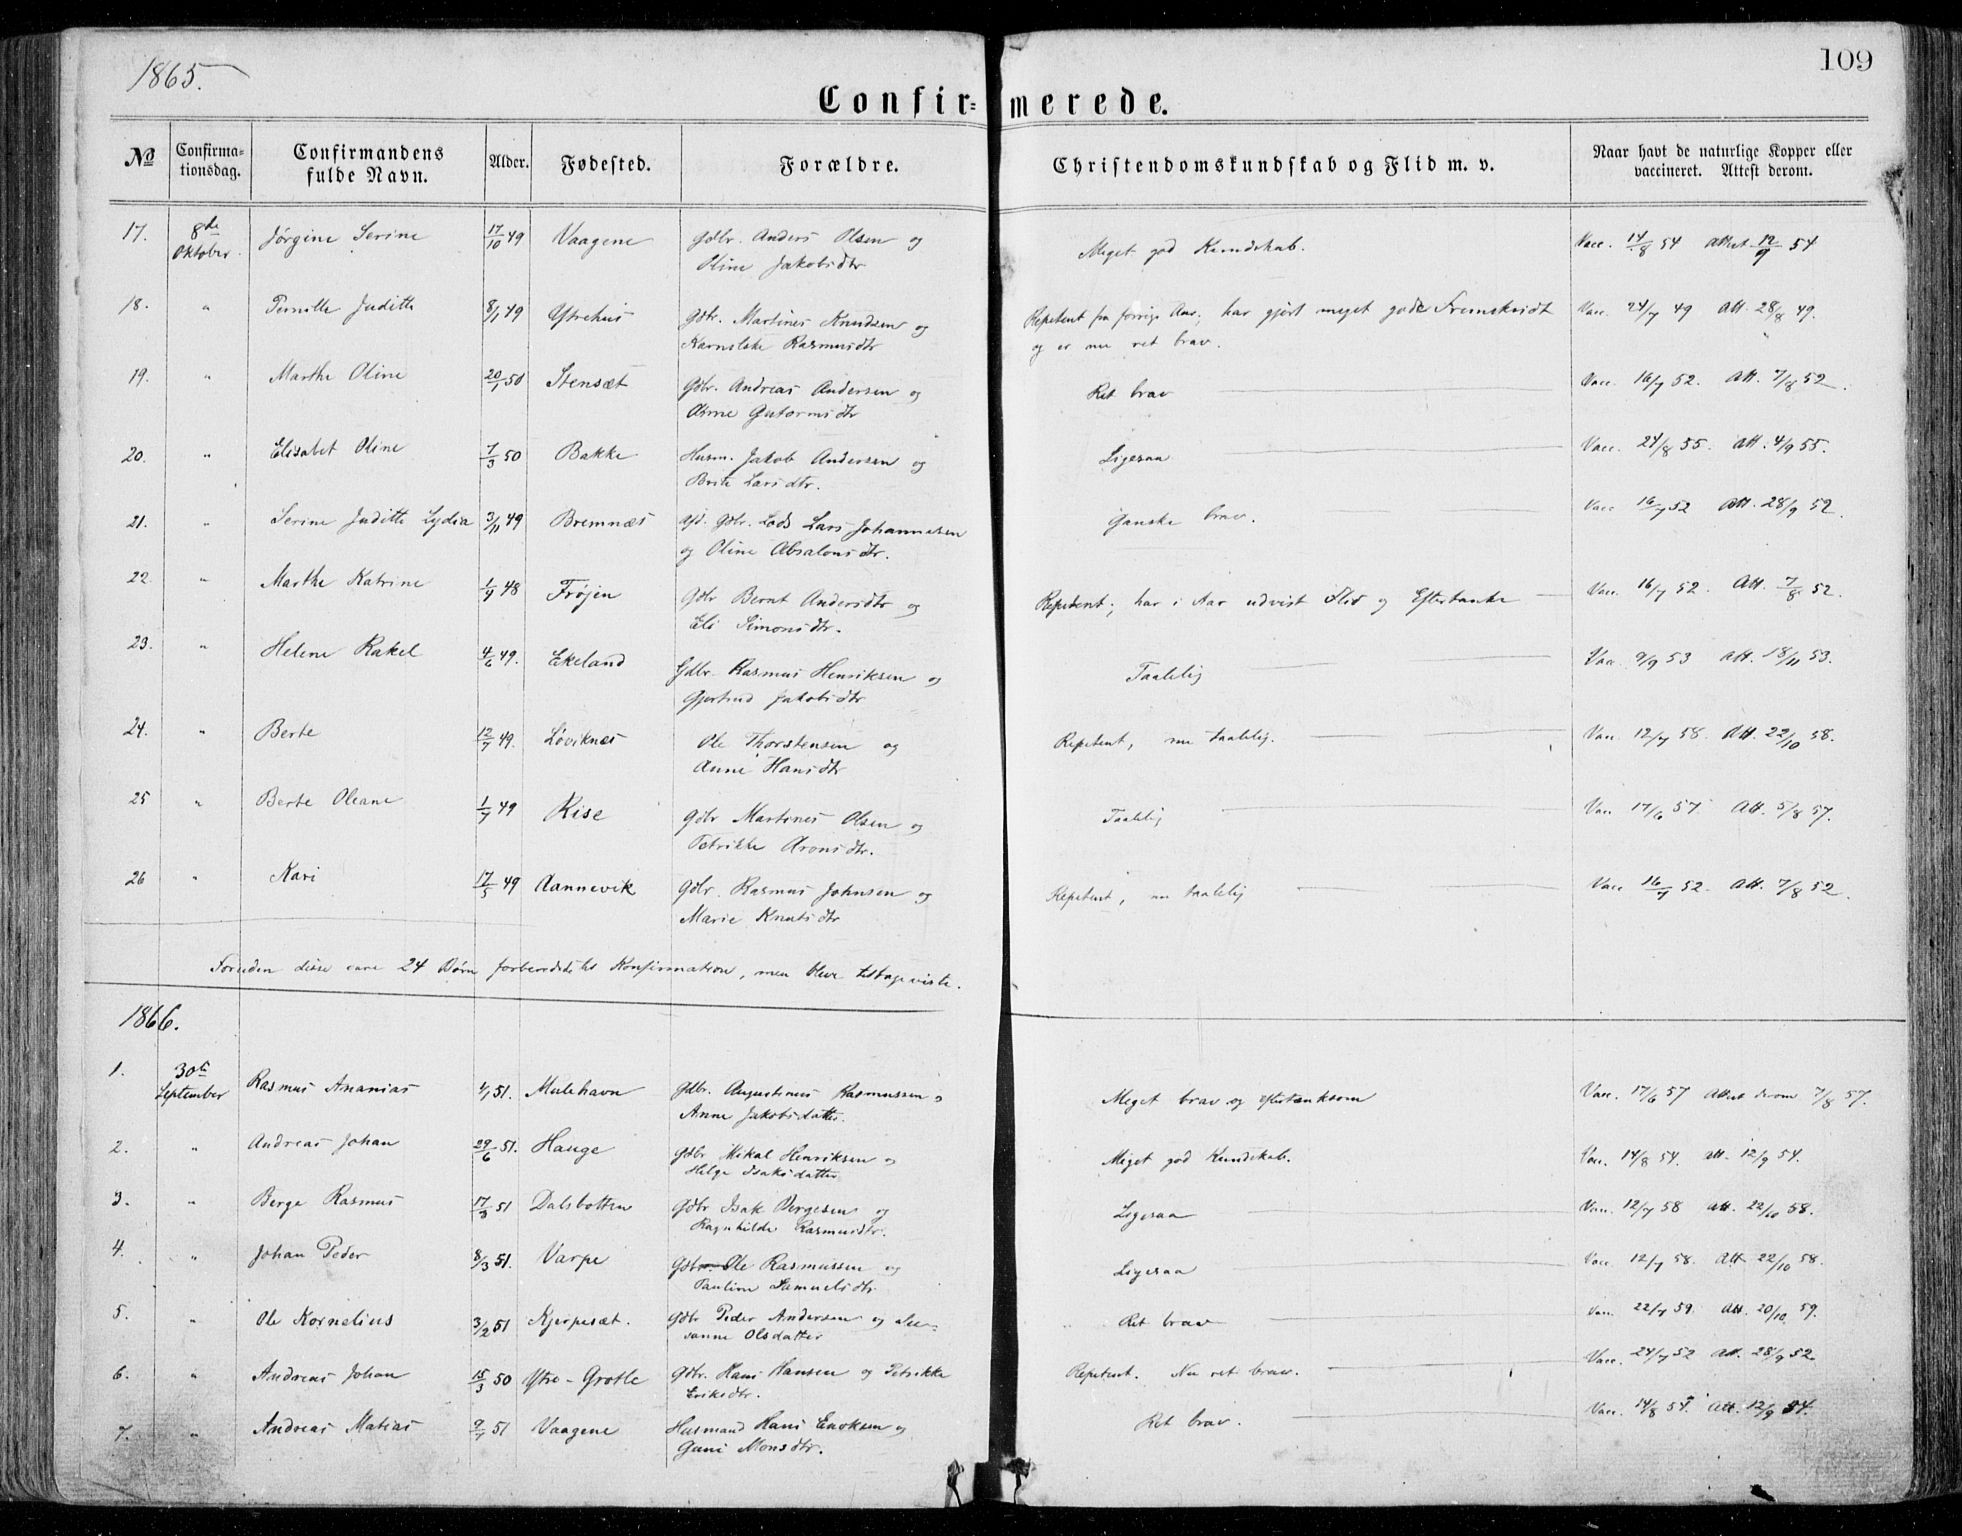 1865.
109
Confirmerede.
№ Confirmationsdag. Confirmandens fulde Navn. Alder. Fødested. Forældre. Christendomskundskab og Flid m. v. Naar havt de naturlige Kopper eller vaccineret. Attest derom.
17. 8de Oktober Jørgine Serine 17/10 49 Vaagene Gdbr. Anders Olsen og Meget god Kundskab. Vacc. 14/8 54 Attest 12/9 54
Oline Jakobsdtr
18. " Pernille Juditte 8/1 49 Ytrehus Gdbr. Martines Knudsen og Repetent fra forrige Aar; har gjort meget gode Fremskridt Vacc. 24/7 49 Att. 28/8 49.
Rasmusdtr og er nu ret brav.
19. " Marthe Oline 20/1 50 Stensæt Gdbr. Andreas Andersen og Ret brav Vacc. 16/7 52. Att. 7/8 52.
Gutormsdtr
20. " Elisabet Oline 7/3 50 Bakke Husm. Jakob Andersen og Ligesaa Vacc. 24/8 55. Att. 4/9 55.
Brite Larsdtr.
21. " Serine Juditte Lydia 3/11 49 Bremnæs afd. Gdbr. Lods Lars Johannesen Ganske brav. Vacc 16/7 52 Att. 28/9 52.
og Oline Absalonsdtr.
22. " Marthe Katrine 1/9 48 Frøjen Gdbr Bernt Andersdtr og Repetent; har i Aar udvist Flid og Eftertanke Vacc. 16/7 52. Att. 7/8 52.
Eli Simonsdtr.
23. " Helene Rakel 4/6 49. Ekeland Gdbr. Rasmus Henriksen og Taalelig Vacc 9/9 53 Att. 18/11 53.
Gjertrud Jakobsdtr
24. " Berte 12/7 49. Løviknes Ole Thorstensen og Repetent, nu taalelig. Vacc. 12/7 58. Att. 22/10 58.
Anne Hansdtr
25 " Berte Oleane 1/7 49 Rise Gdbr Martines Olsen og Taalelig Vacc 17/6 57. Att. 5/8 57.
Petrikke Aronsdtr.
26 " Kari 17/5 49 Aannevik Gdbr. Rasmus Johnsen og Repetent, nu taalelig Vacc 16/7 52. Att. 7/8 52.
Marie Knutsdtr
Foruden disse vare 24 Børn forberedte til Konfirmation, men bleve tilbageviste.
1866.
1. 30te September Rasmus Ananias 4/1 51. Mulehavn Gdbr. Augustinus Rasmussen o Meget brav og eftertænksom Vacc. 17/6 57 Attest derom 7/8 57.
Anne Jakobsdatter.
2. " Andreas Johan 29/6 51. Hauge Gdbr Mikal Henriksen og Meget god Kundskab. Vacc. 14/8 54. Att. 12/9 54.
Helge Isaksdatter
3. " Berge Rasmus 17/3 51 Dalsbotten Gdbr Isak Bergesen og Ligesaa Vacc. 12/7 58 Att. 22/10 58.
Ragnhilde Rasmusdtr.
4. " Johan Peder 8/3 51. Varpe Gdbr. Ole Rasmussen og Ligesaa Vacc. 12/7 58. Att 22/10 58.
Pauline Samuelsdtr
5. " Ole Kornelius 3/2 51 Kjerpesæt. Gdbr Peder Andersen og Ale- Ret brav Vacc. 22/7 59. Att. 20/10 59.
Olsdatter
6. " Andreas Johan 15/3 50 Ytre-Grotle Gdbr. Hans Hansen og Petrikke Repetent. Nu ret brav. Vacc. 24/7 52 Att. 28/9 52
Eriksdtr.
7. " Andreas Matias 9/1 51 Vaagene Husmand Hans Enoksen og Ret brav. Vacc. 14/8 54. Att. 12/9 54.
Guni Monsdtr.